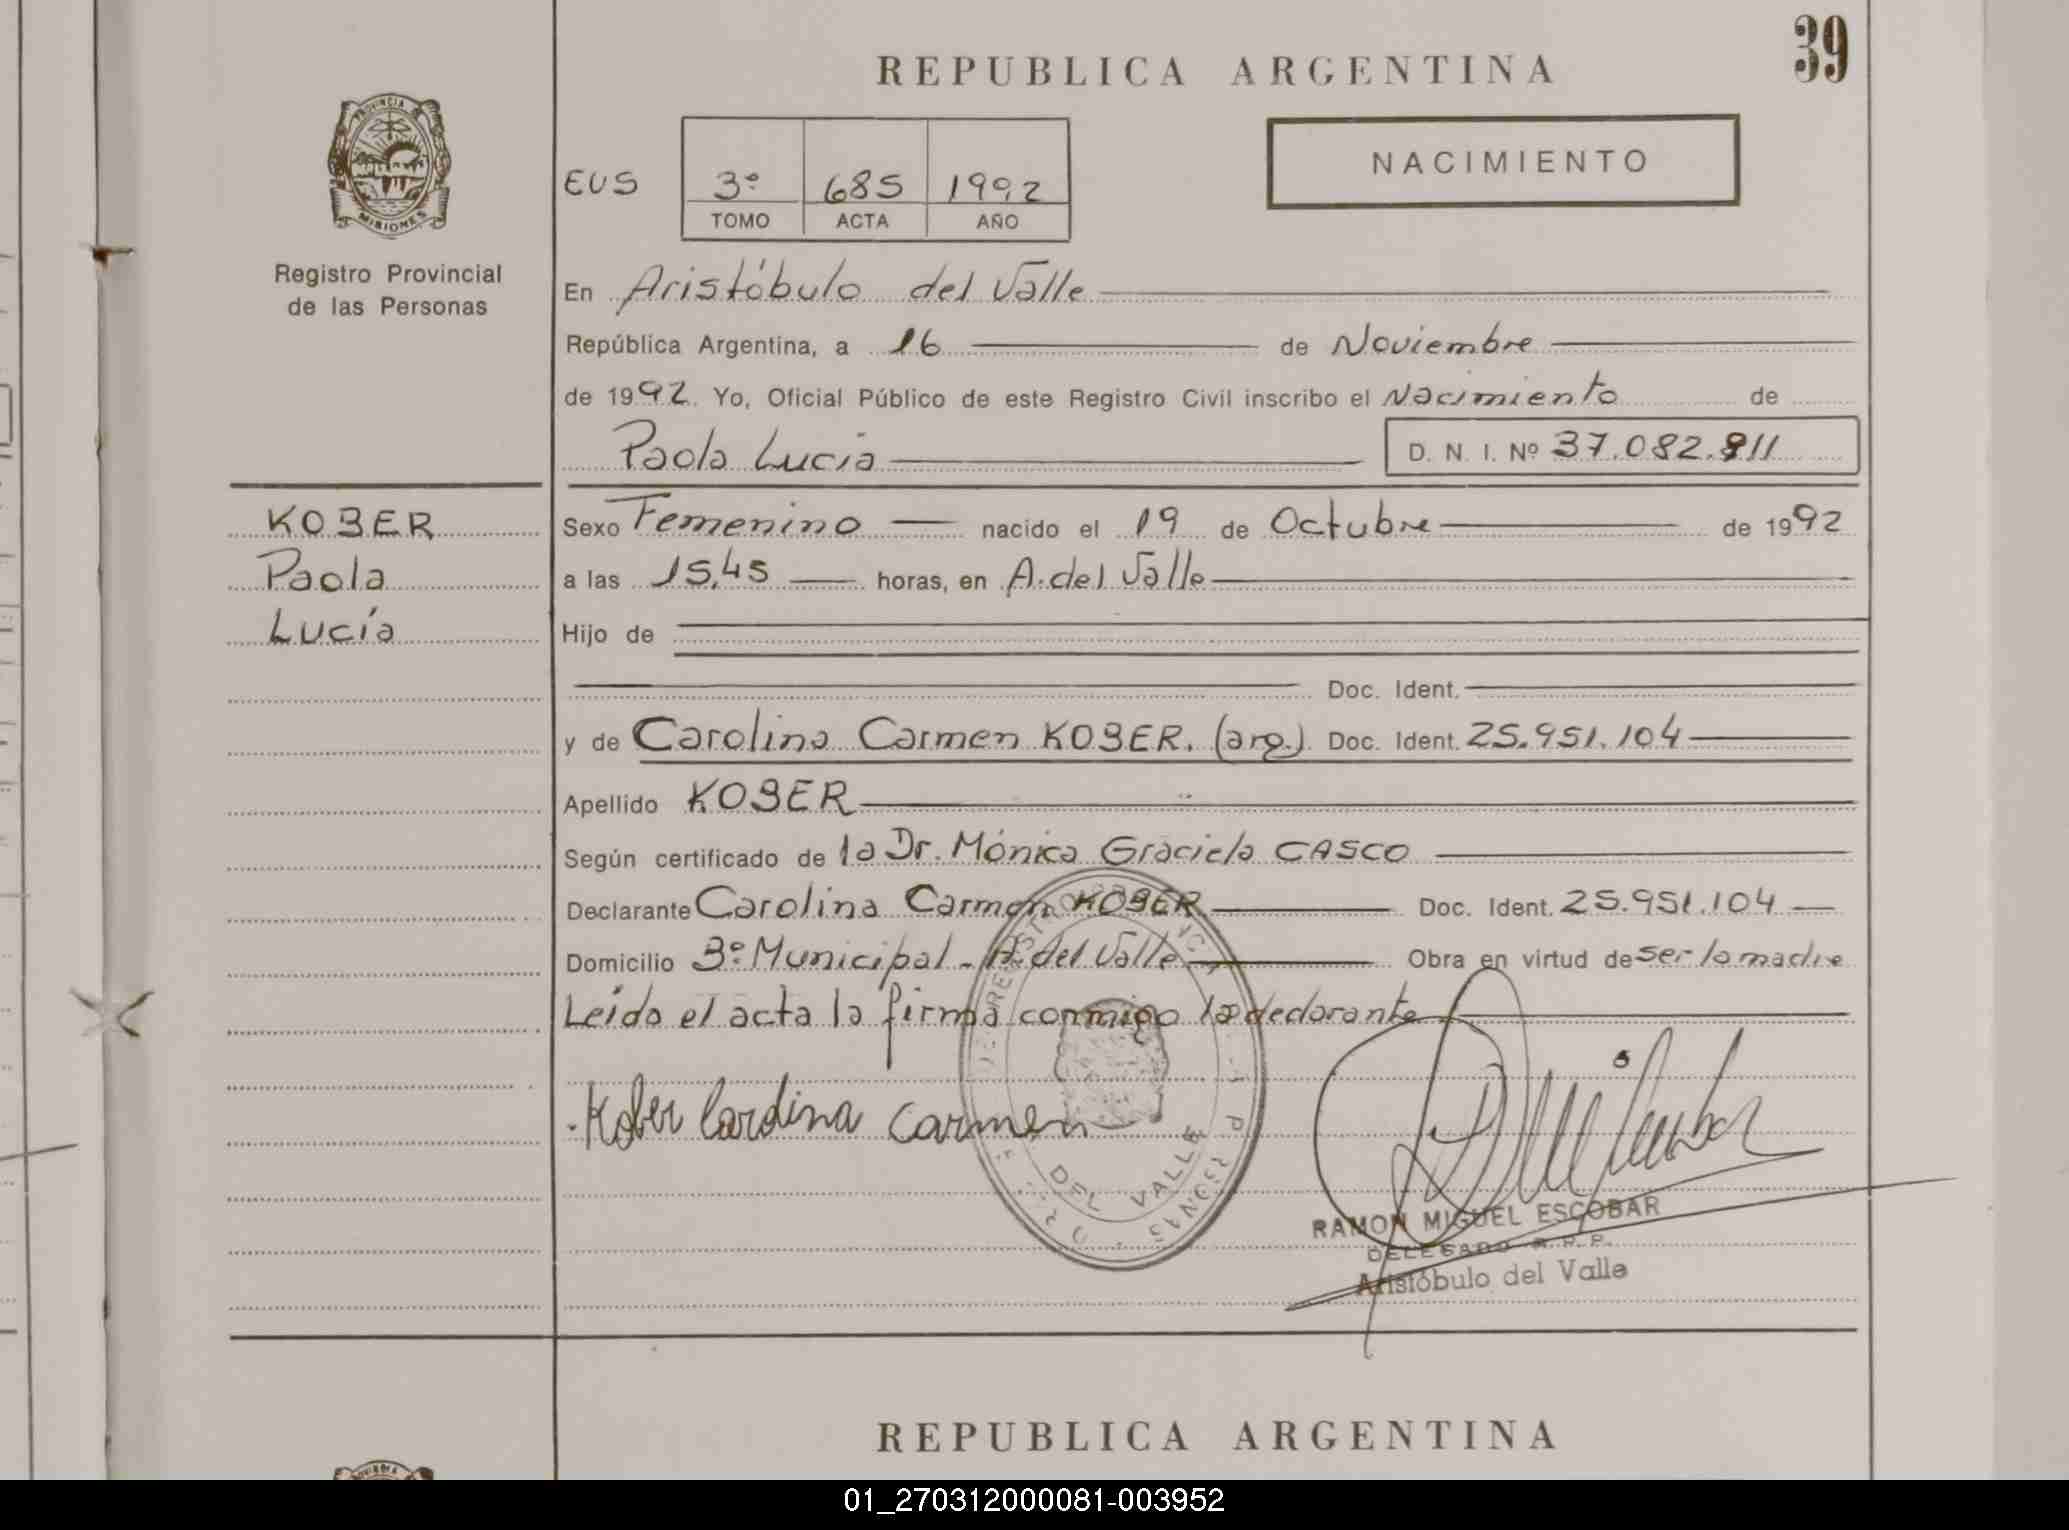 39
REPUBLICA ARGENTINA
PROVINCIA
MISIONES
Registro Provincial
de las Personas
NACIMIENTO
EUS 3º 685 1992
TOMO ACTA AÑO
En Aristóbulo del Valle
República Argentina, a 16 de Noviembre
de 1992. Yo, Oficial Público de este Registro Civil inscribo el Nacimiento de
Paola Lucia D. N. I. Nº 37.082.811
KOBER
Paola
Lucía
Sexo Femenino nacido el 19 de Octubre de 1992
a las 15,45 horas, en A. del Valle
Hijo de
Doc. Ident.
y de Carolina Carmen KOBER. (arg.) Doc. Ident. 25.951.104
Apellido KOBER
Según certificado de la Dr. Mónica Graciela CASCO
Declarante Carolina Carmen KOBER Doc. Ident. 25.951.104
Domicilio 3º Municipal - A. del Valle Obra en virtud de ser la madre
Leída el acta la firma conmigo la declarante
Kober Carolina Carmen
DEL VALLE
RAMON MIGUEL ESCOBAR
DELEGADO R.P.P.
Aristóbulo del Valle
REPUBLICA ARGENTINA
PROVINCIA
01_270312000081-003952